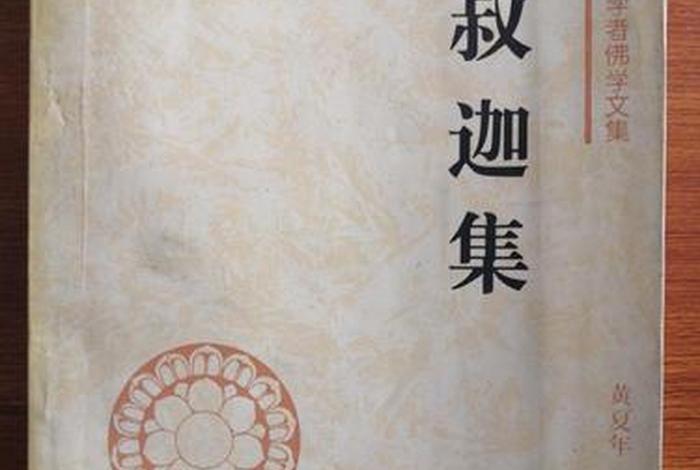 学者佛学文集
黄夏年
叔迦集